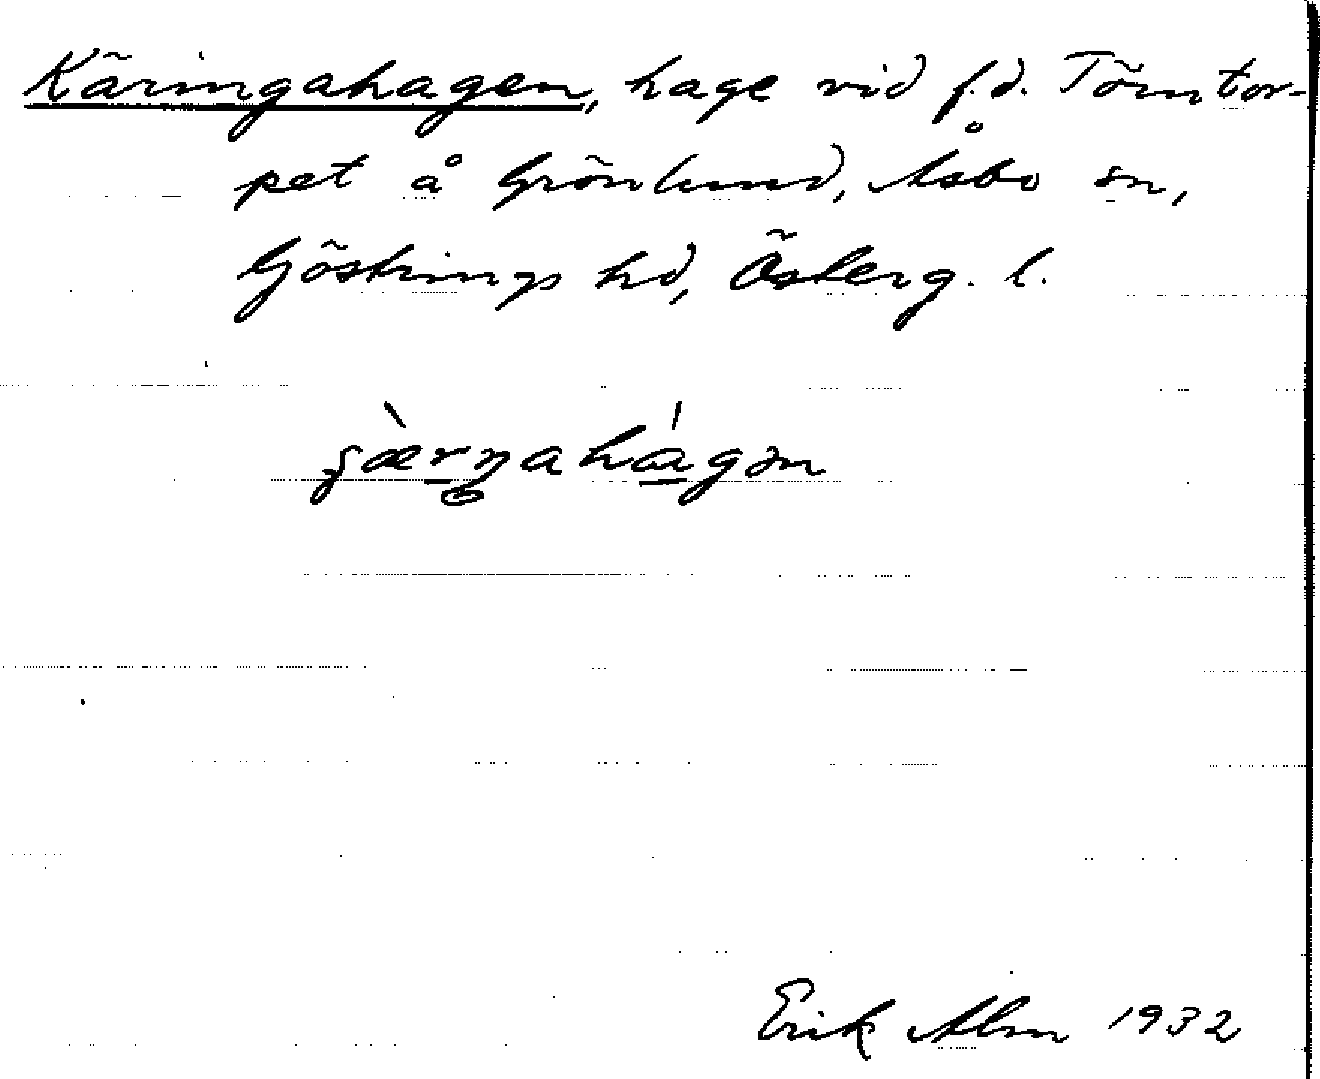 Käringahagen, hage vid f.d. Törntor-
pet å Grönlund, Åsbo sn,
Göstrings hd, Österg. l.
Erik Alm 1932